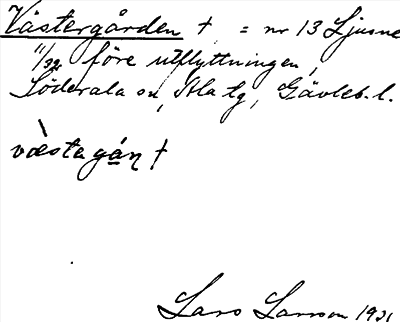 Västergården † = nr 13 Ljusne
före utflyttningen,
Söderala sn, Ala tg, Gävleb. l.
væ̀stagán †
Lars Larsson 1931